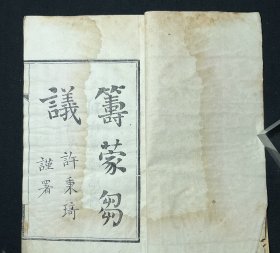 籌蒙芻
議
許秉琦
謹署